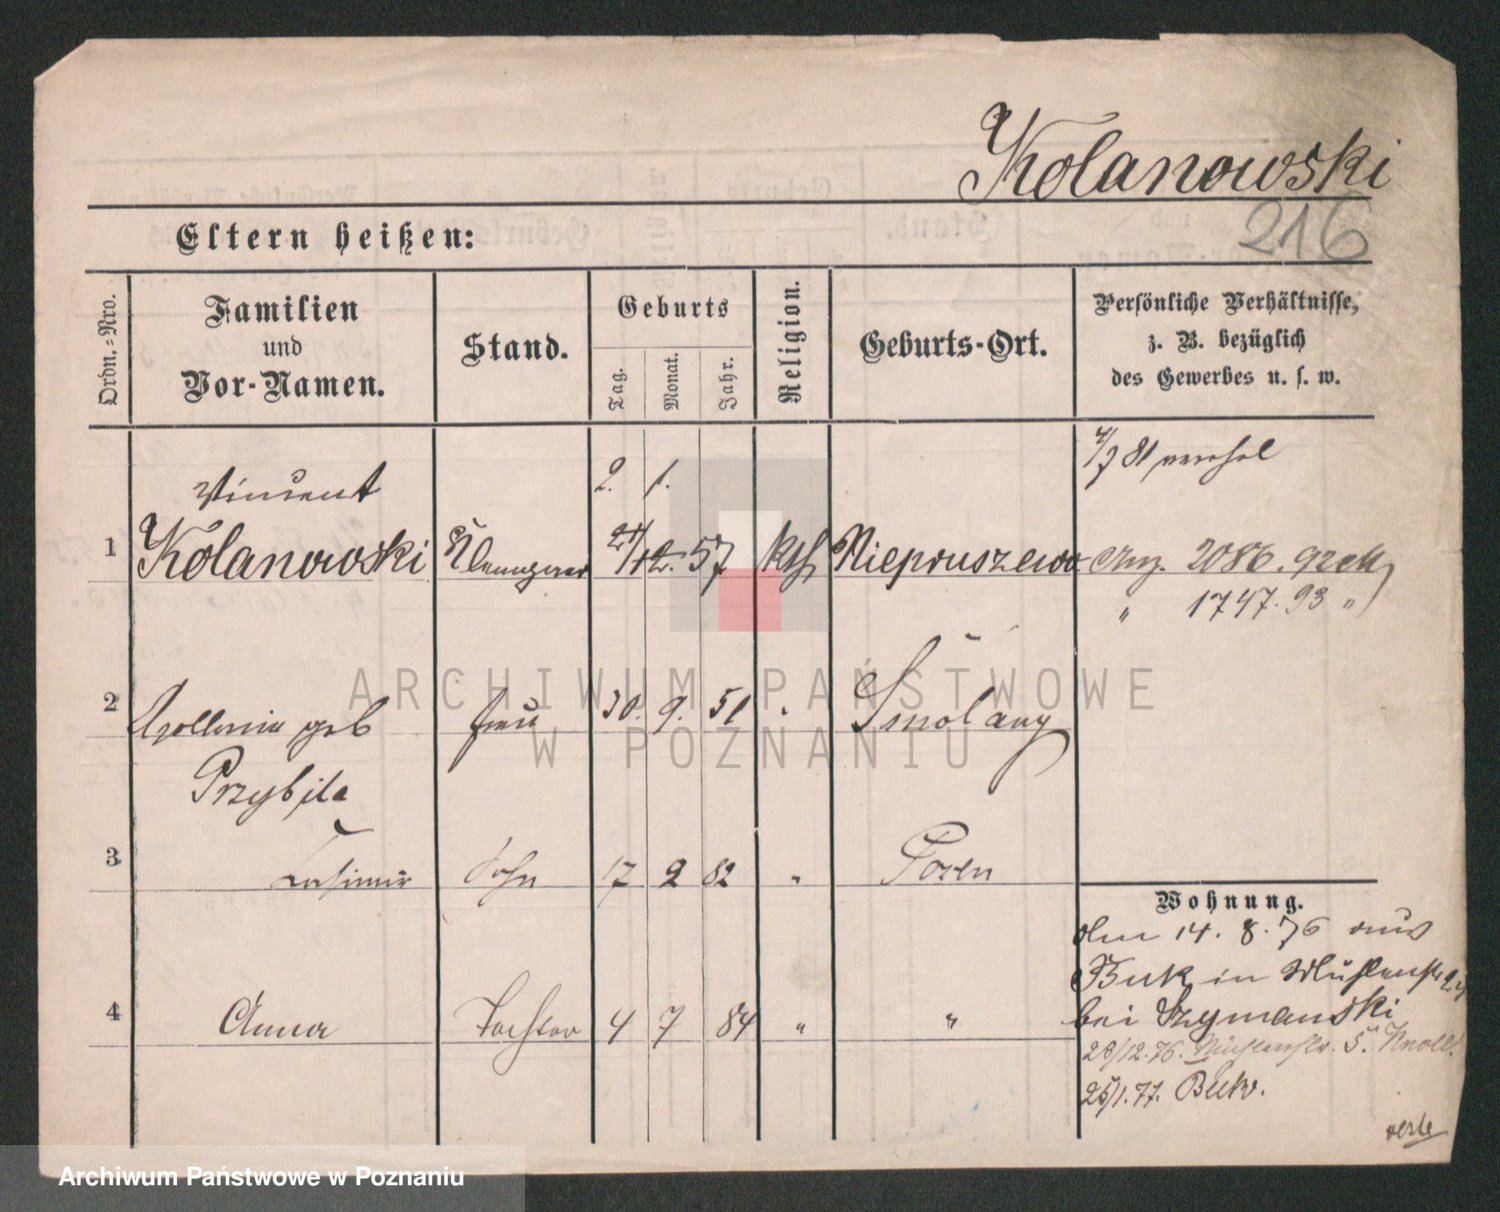 Kolanowski
216
Eltern heißen:
Ordn.-Nro.
Familien
und
Vor-Namen.
Stand.
Geburts
Tag.
Monat.
Jahr.
Religion.
Geburts-Ort.
Persönliche Verhältnisse,
z. B. bezüglich
des Gewerbes u. s. w.
81
Vincent 2. 1.
1 Kolanowski 21/12. 57 kth Niepruszewo
2086. 92
" 1747. 93 "
2 Apollonia geb Frau 30. 9. 51 " Smolany
Przybila
3 Casimir Sohn 17 2 82 " Posen
4 Anna Tochter 4 7 84 " "
Wohnung.
Den 14. 8. 76 aus
Buk in Mühlenstr
bei Szymanski
28/12. 76. Mühlenstr. 5. Knoll.
25/1. 77. Buk.
ARCHIWUM PAŃSTWOWE
W POZNANIU
Archiwum Państwowe w Poznaniu